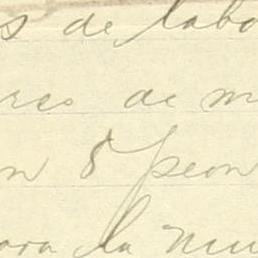 s de labo
res de m
n 8 peon
ara la nu